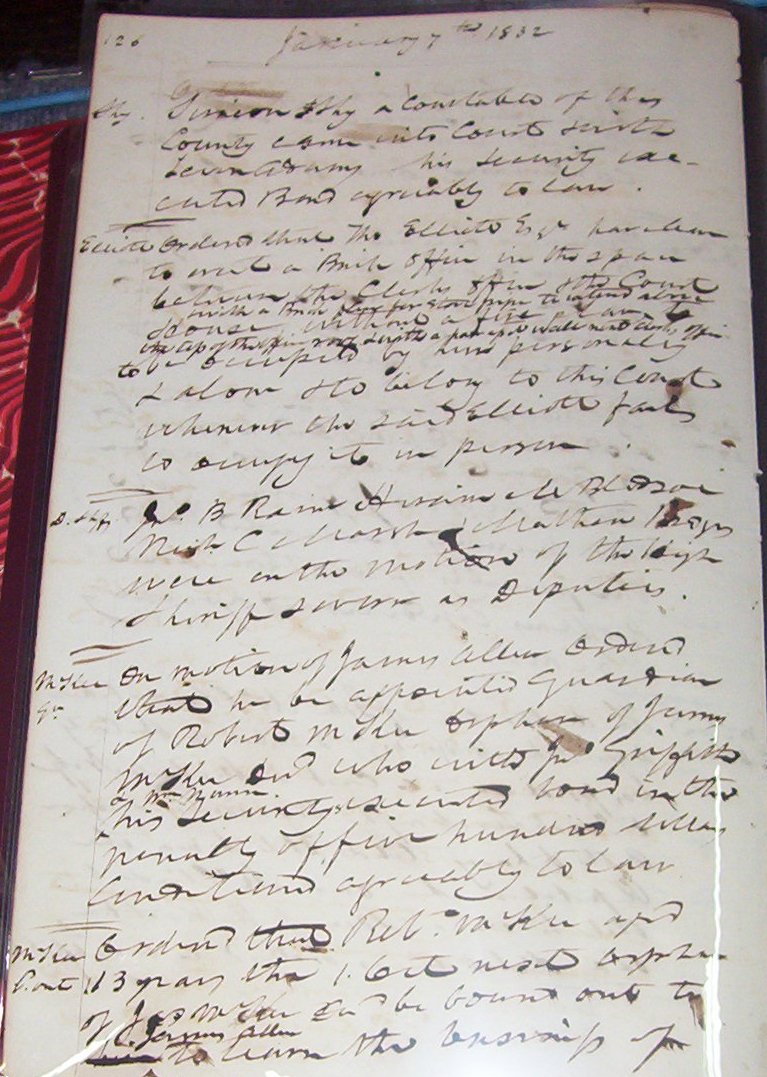 126 January 7th 1832
Shy. Simeon Shy a Constable of this
County came into Court with
Levin Adams his Security exe-
cuted Bond agreeably to law.
Elliott Ordered that Elliott Esqr have leave
to erect a Brick office in the space
between the Clerks office & the Court
with a Brick for Stove pipe to extend above
House without a fire place to
the top of the roof
to be occupied by him personally
& alone & to belong to this Court
whenever the said Elliott fails
to occupy it in person.
D. Shff Jno. B Raine Hiram
Nich C & Mathew
were on the motion of the High
Sheriff sworn as Deputies.
McKee On motion of James Allen Ordered
Gn that he be appointed Guardian
of Robert McKee Orphan of James
McKee Decd who with Jno Griffith
& Wm Nunn
his Security executed bond in the
penalty of five hundred dollars
Conditioned agreeably to law
McKee Ordered that Robt. McKee aged
B. out 13 years the 1. Oct next orphan
of Jas McKee Decd be bound out to
James Allen
to learn the business of